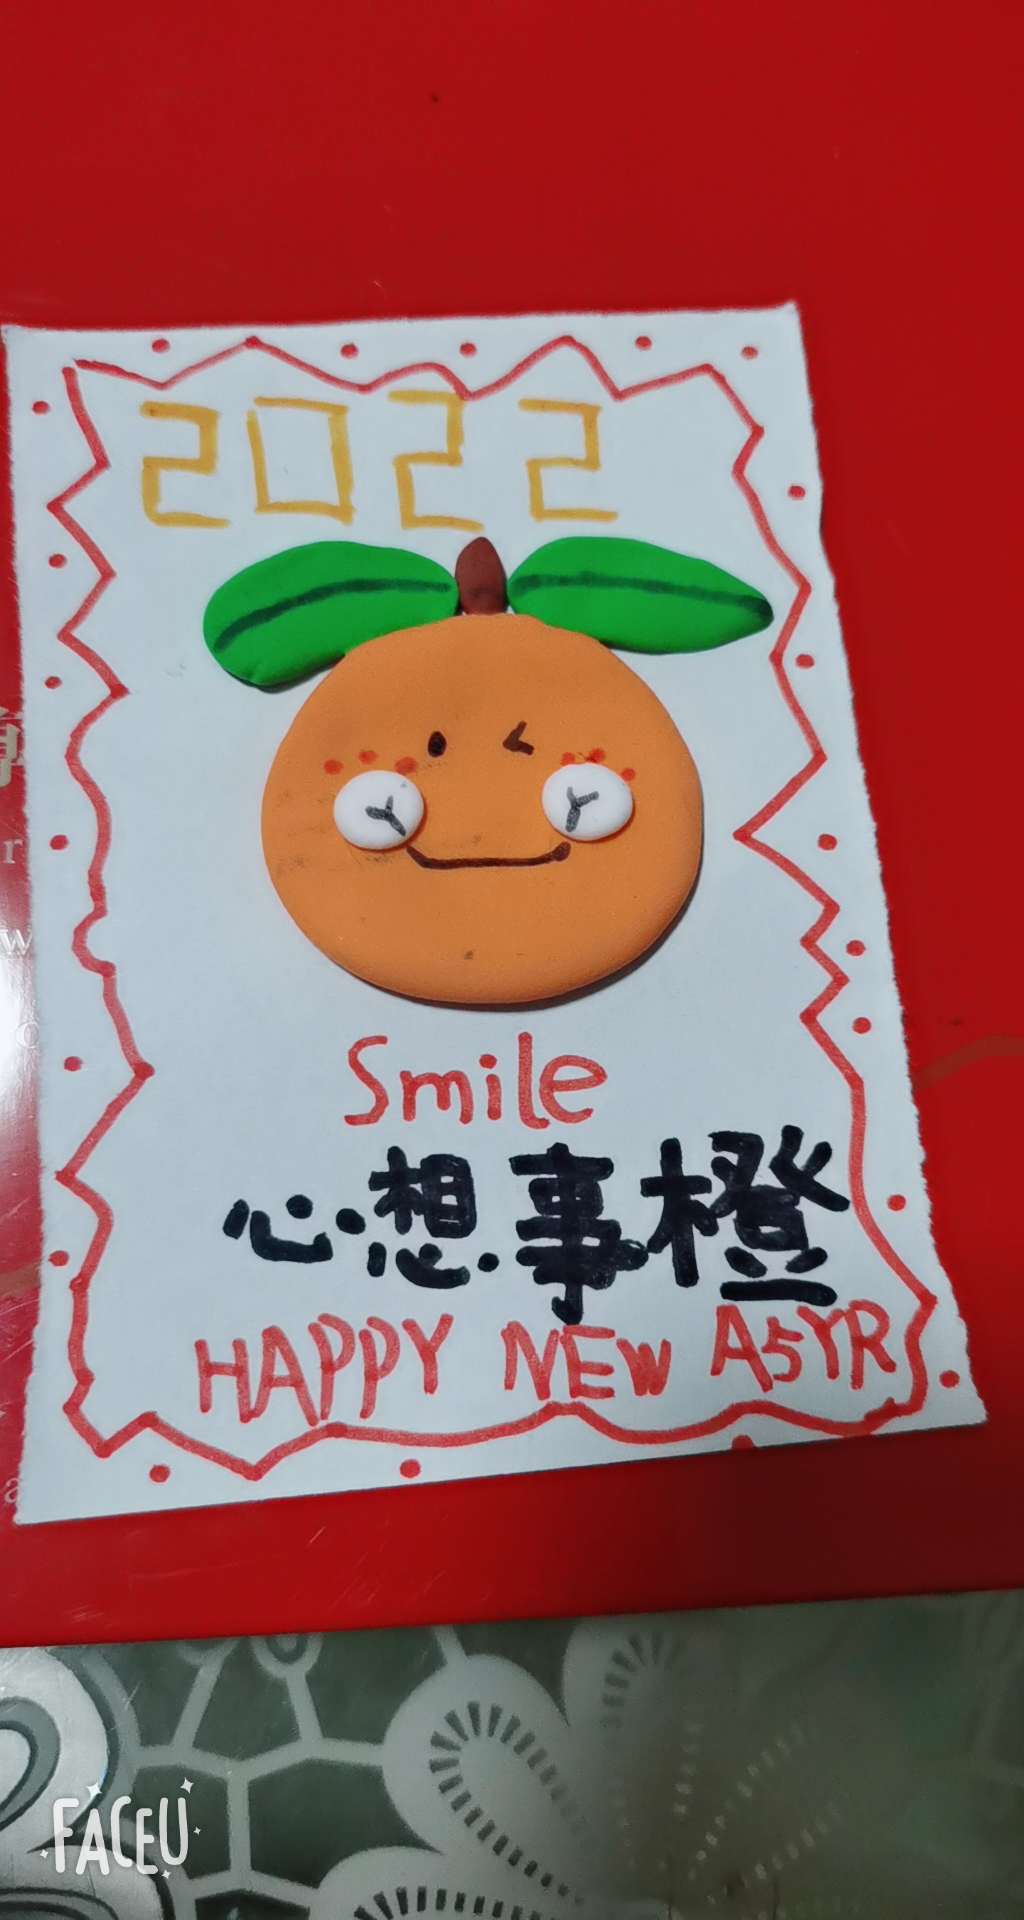 2022
Smile
心想事橙
HAPPY NEW A5YR
FACEU